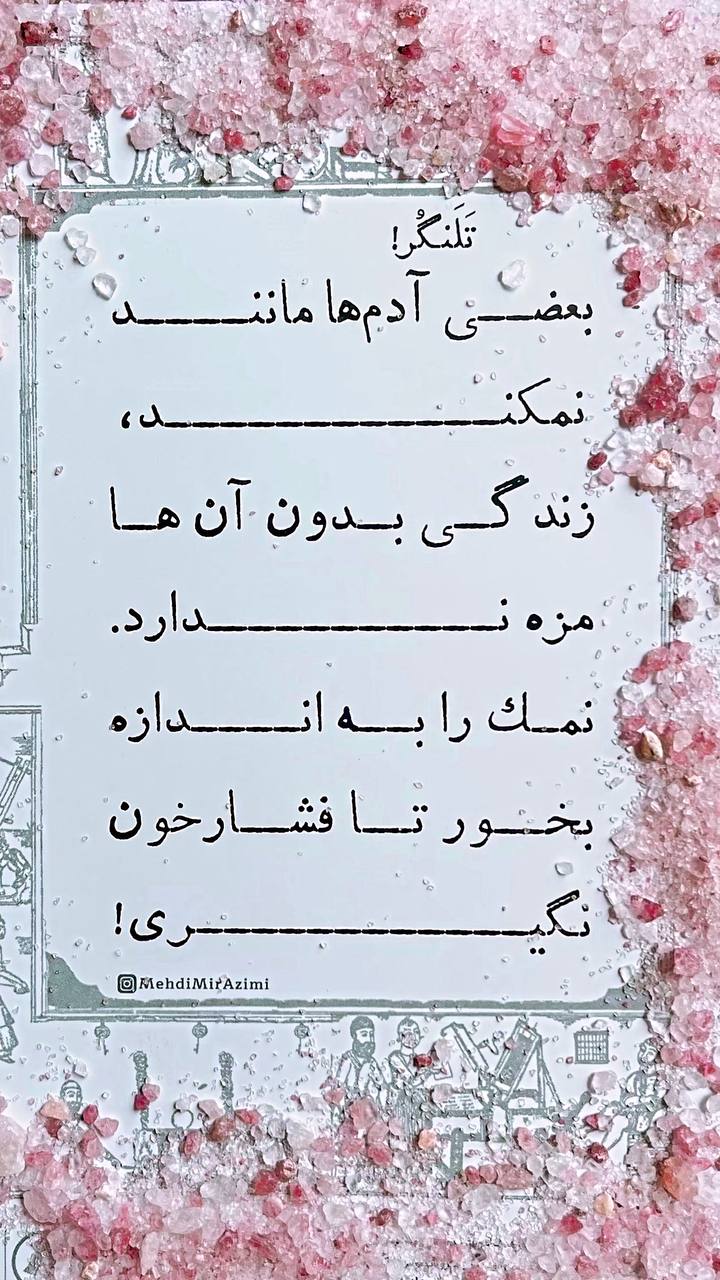 تَلَنگُر!
بعضی آدم‌ها مانند
نمکند،
زندگی بدون آن ها
مزه ندارد.
نمك را به اندازه
بخور تا فشارخون
نگیری!
MehdiMirAzimi